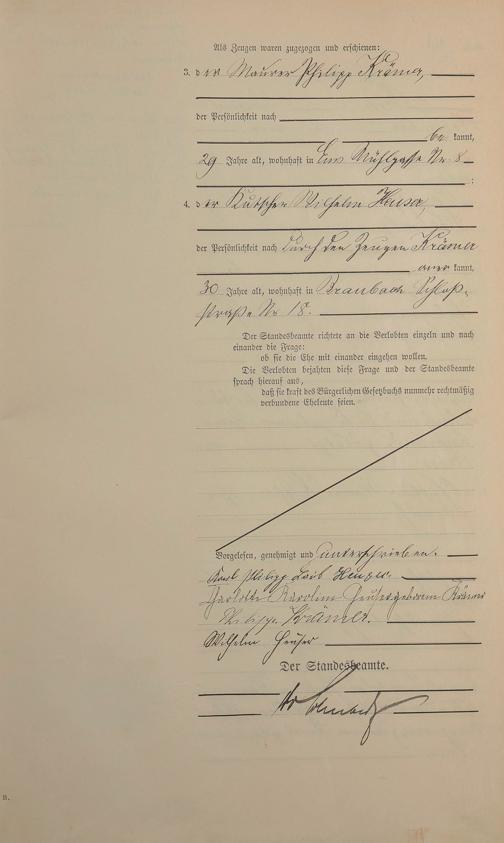 Als Zeugen waren zugezogen und erschienen:
3. der Maurer Philipp Krämer,
der Persönlichkeit nach
be kannt,
29 Jahre alt, wohnhaft in Ems Mühlgasse Nr. 8
;
4. der Kutscher Wilhelm
der Persönlichkeit nach durch den Zeugen Krämer
aner kannt,
30 Jahre alt, wohnhaft in Braubach Schloß-
straße Nr. 18.
Der Standesbeamte richtete an die Verlobten einzeln und nach
einander die Frage:
ob sie die Ehe mit einander eingehen wollen.
Die Verlobten bejahten diese Frage und der Standesbeamte
sprach hierauf aus,
daß sie kraft des Bürgerlichen Gesetzbuchs nunmehr rechtmäßig
verbundene Eheleute seien.
Vorgelesen, genehmigt und unterschrieben.
Karl Philipp
Karoline geborene Krämer
Philipp Krämer.
Wilhelm Heuser
Der Standesbeamte.
B.